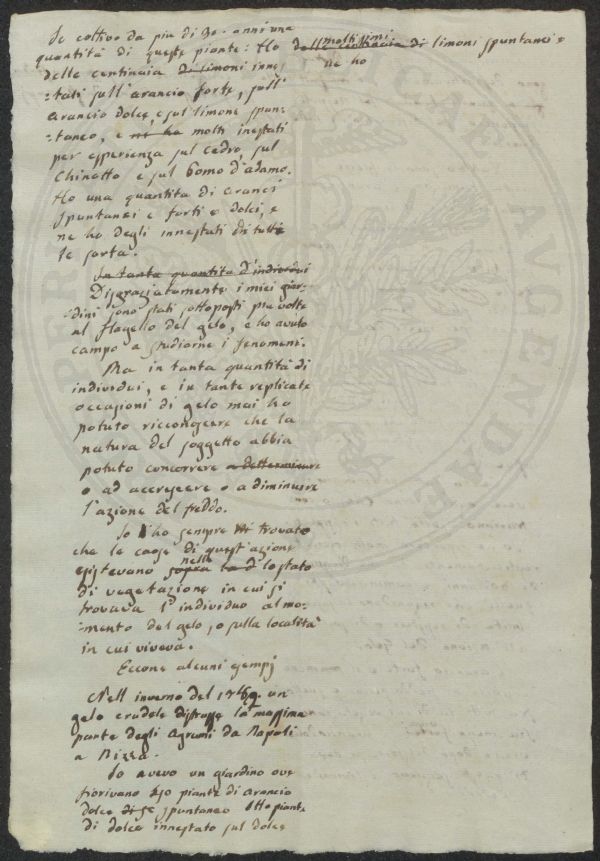 Io coltivo da piu di 30. anni una
quantità di queste piante: Ho moltissimi limoni spuntanei e
delle centinaia di limoni inne- ne ho
:stati sull'arancio forte, sull'
arancio dolce, e sul limone spun-
:taneo, e ne ho molti inestati
per esperienza sul cedro, sul
Chinotto e sul Pomo d'adamo.
Ho una quantità di aranci
spuntanei e forti e dolci, e
ne ho degli innestati di tutte
le sorta.
In tanta quantità d'individui
Disgraziatamente i miei giar-
:dini sono stati sottoposti piu volte
al flagello del gelo, e ho avuto
campo a studiarne i fenomeni.
Ma in tanta quantità di
individui, e in tante replicate
occasioni di gelo mai ho
potuto riconoscere che la
natura del soggetto abbia
potuto concorrere a determinare
o ad accrescere o a diminuire
l'azione del freddo.
Io l'ho sempre trovato
che le cause di quest'azione
esistevano sopra nello lo stato
di vegetazione in cui si
trovava l'individuo al mo-
:mento del gelo, o sulla località
in cui viveva.
Eccone alcuni esempj
Nell inverno del un
gelo crudele distrusse la massima
parte degli Agrumi da Napoli
a Nizza.
Io avevo un giardino ove
fiorivano piante di arancio
dolce spuntaneo Otto piante
di dolce innestato sul dolce